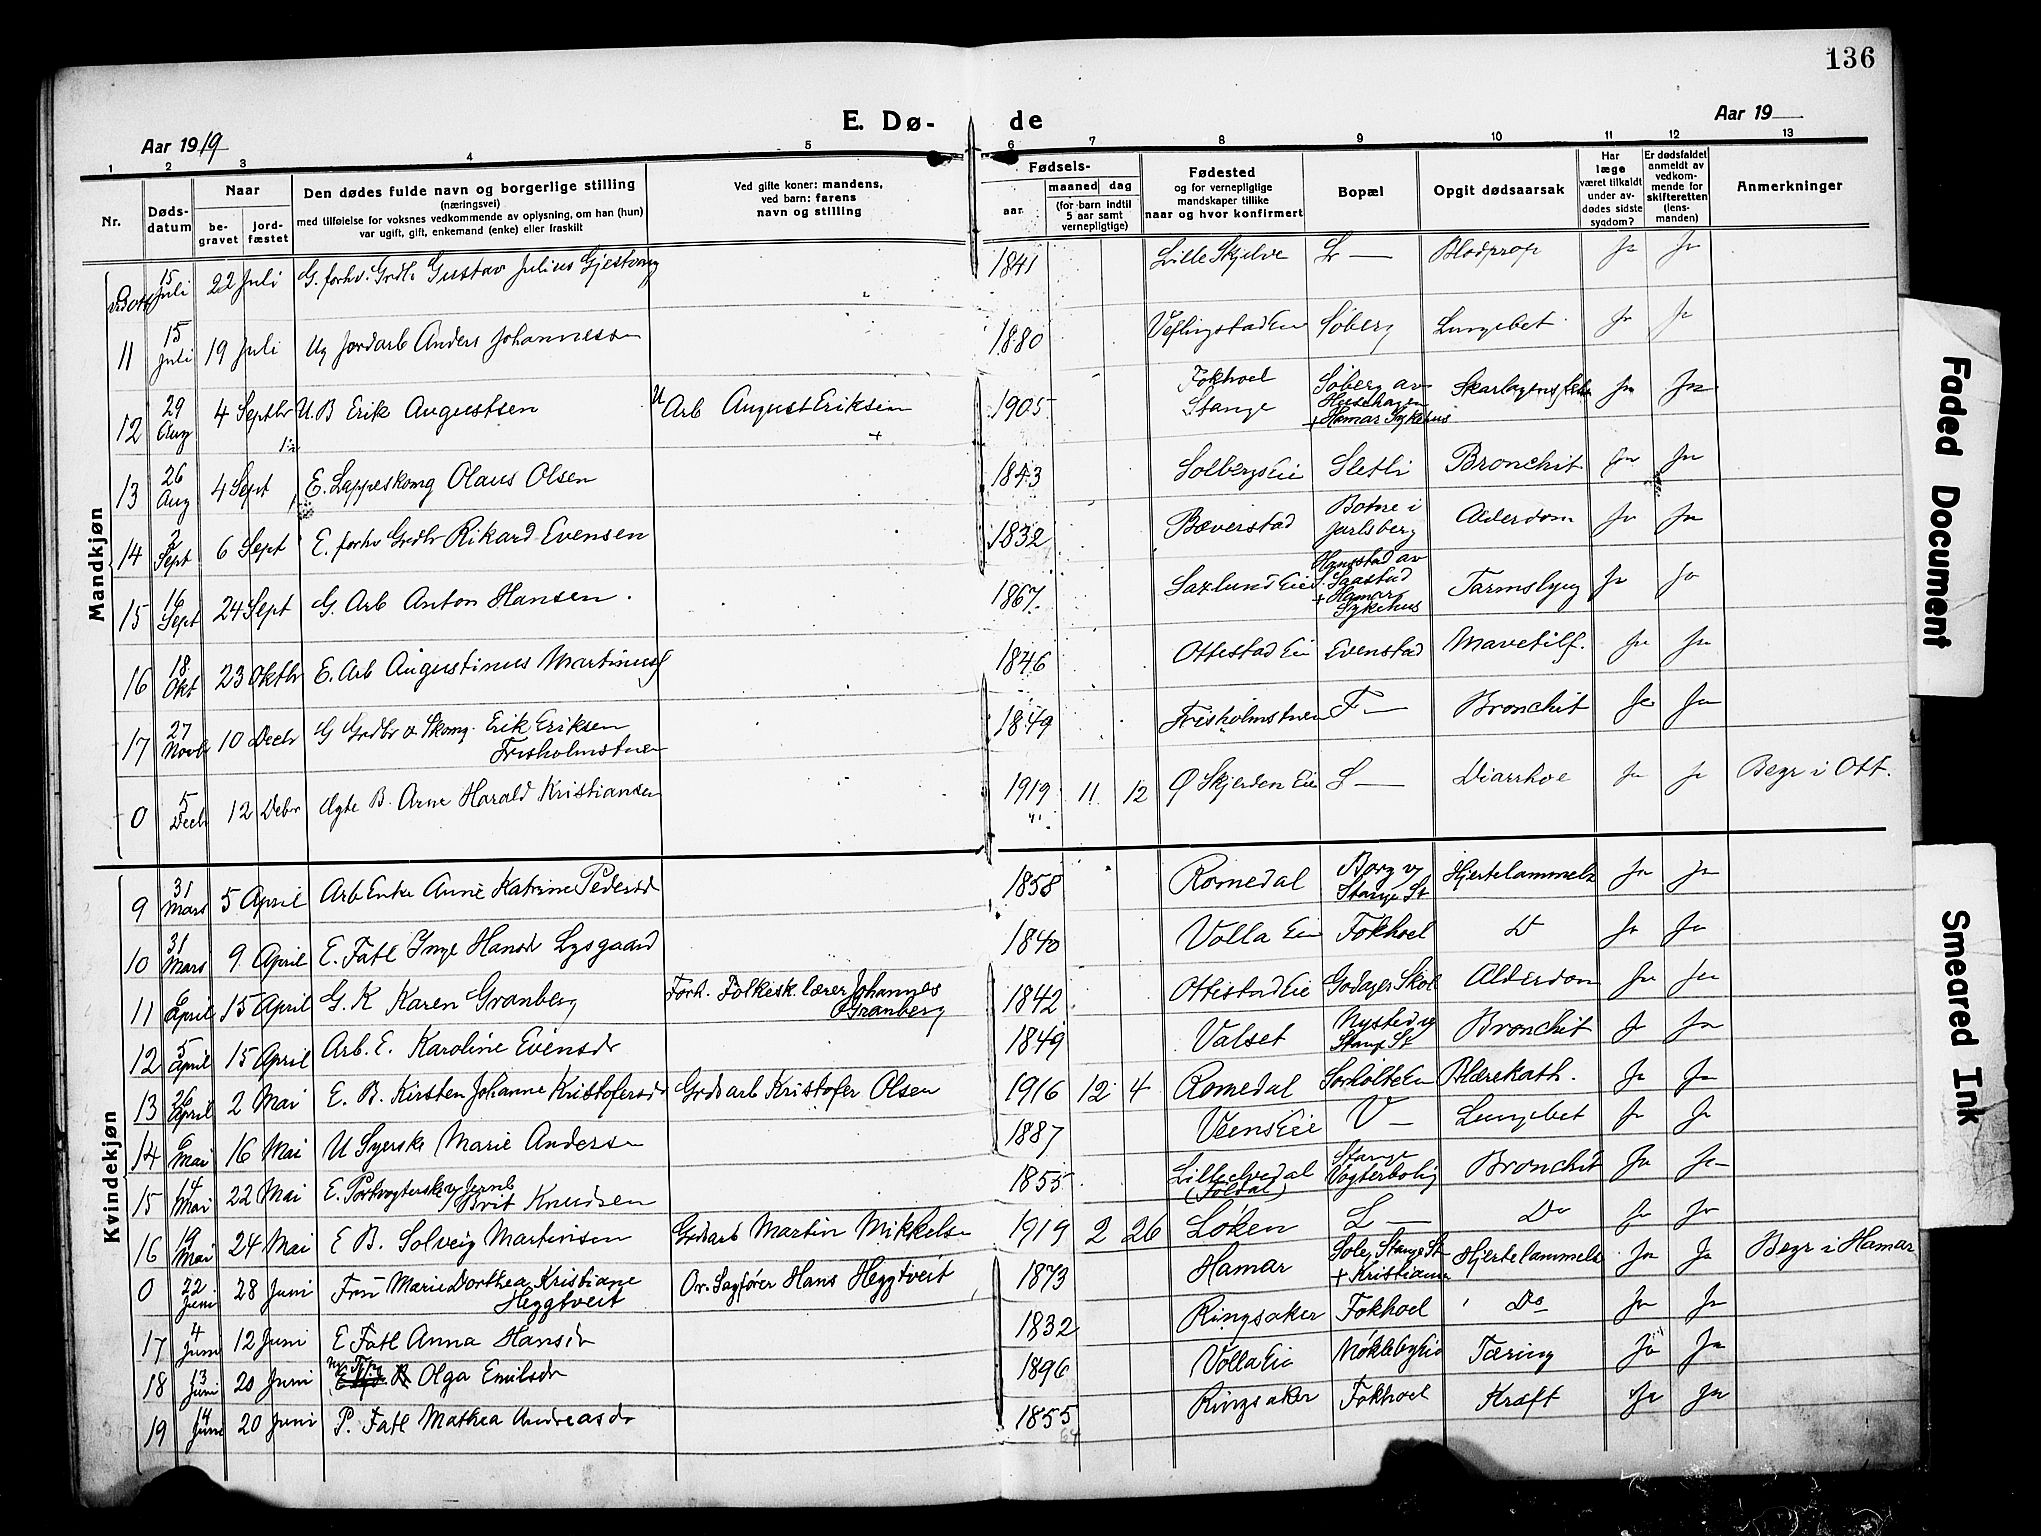 136
E. Dø- de
Aar 1919
Aar 19
1 2 3 4 5 6 7 8 9 10 11 12 13
Nr.
Døds-
datum
Naar
be-
gravet
jord-
fæstet
Den dødes fulde navn og borgerlige stilling
(næringsvei)
med tilføielse for voksnes vedkommende av oplysning, om han (hun)
var ugift, gift, enkemand (enke) eller fraskilt
Ved gifte koner: mandens,
ved barn: farens
navn og stilling
Fødsels-
aar
maaned dag
(for barn indtil
5 aar samt
vernepligtige)
Fødested
og for vernepligtige
mandskaper tillike
naar og hvor konfirmert
Bopæl
Opgit dødsaarsak
Har
læge
været tilkaldt
under av-
dødes sidste
sygdom?
Er dødsfaldet
anmeldt av
vedkom-
mende for
skifteretten
(lens-
manden)
Anmerkninger
Mandkjøn
15 Juli 22 Juli G. forhv. Grdbr Gustav Julius Gjestvang 1841 Lille Skjelve L— Blodprop Ja Ja
11 15 Juli 19 Juli Ug Jordarb Anders Johannessen 1880 Veflingstad Eie Søberg Lungebet. Ja Ja
12 29 Aug 4 Septbr U. B Erik Augustsen U Arb August Eriksen 1905 Fokhoel Stange Søberg av
+ Hamar Sykehus Skarlagensfeber Ja Ja
13 26 Aug 4 Sept E. Lappeskomg Olaus Olsen 1843 Solbergs Eie Sletli Bronchit Ja Ja
14 2 Sept 6 Sept E. forhv Grdbr Rikard Evensen 1832 Bæverstad Botne i
Jarlsberg Alderdom Ja Ja
15 16 Sept 24 Sept G. Arb Anton Hansen. 1867 Saxlund Eie
+ Hamar
Sykehus Tarmslyng Ja Ja
16 18 Okt 23 Oktbr E. Arb Augustinus Martinus 1846 Ottestad Eie Evenstad Mavetilf. Ja Ja
17 27 Novb 10 Decbr G Grdbr & Skomg. Erik Eriksen
Frisholmstuen 1849 Frisholmstuen F— Bronchit Ja Ja
0 5 Decb 12 Debr Ægte B. Arne Harald Kristiansen 1919 11 12 Ø Skjerden Eie S— Diarrhoe Ja Ja Begr i Ott.
Kvindekjøn
9 31 Mars 5 April Arb Enke Anne Katrine Pedersd 1858 Romedal Borg v/
Stange St Hjertelammelse Ja Ja
10 31 Mars 9 April E. Fatl Inge Hansd Lysgaard 1840 Volla Eie Fokhoel Do Ja Ja
11 April 15 April G. K Karen Granberg Forh. Folkesk. lærer Johannes
Granberg 1842 Ottestad Eie Godager Skol Alderdom Ja Ja
12 5 April 15 April Arb. E. Karoline Evensdr 1849 Valset Nysted v/
Stange St Bronchit Ja Ja
13 26 April 2 Mai E. B. Kirsten Johanne Kristofersd Grdsarb Kristofer Olsen 1916 12 4 Romedal Sorholte Eie Blærekath. Ja Ja
14 Mai 16 Mai U Syerske Marie Andersen 1887 Veens Eie V— Lungebet Ja Ja
15 14 Mai 22 Mai E. Portvogterske v/ Jernb
Brit Knudsen 1855 Lille elvedal
(Foldal) Stange
Vogterbolig Bronchit Ja Ja
16 19 Mai 24 Mai E B. Solveig Martinsen Grdsarb Martin Mikkelsen 1919 2 26 Løken L— Do Ja Ja
0 22 Juni 28 Juni Fru Marie Dorthea Kristiane
Heggtveit Ov. Sagfører Hans Heggtveit 1873 Hamar Soley Stange St
+ Kristiania Hjertelammelse Ja Ja Begr i Hamar
17 4 Juni 12 Juni E Fatl Anna Hansdr 1832 Ringsaker Fokhoel Do Ja Ja
18 13 Juni 20 Juni Olga Emilsdr 1896 Volla Eie Møkleby Eie Tæring Ja Ja
19 14 Juni 20 Juni P. Fatl Mathea Andreasdr 1855 Ringsaker Fokhoel Kræft Ja Ja
64
Faded Document
Smeared Ink